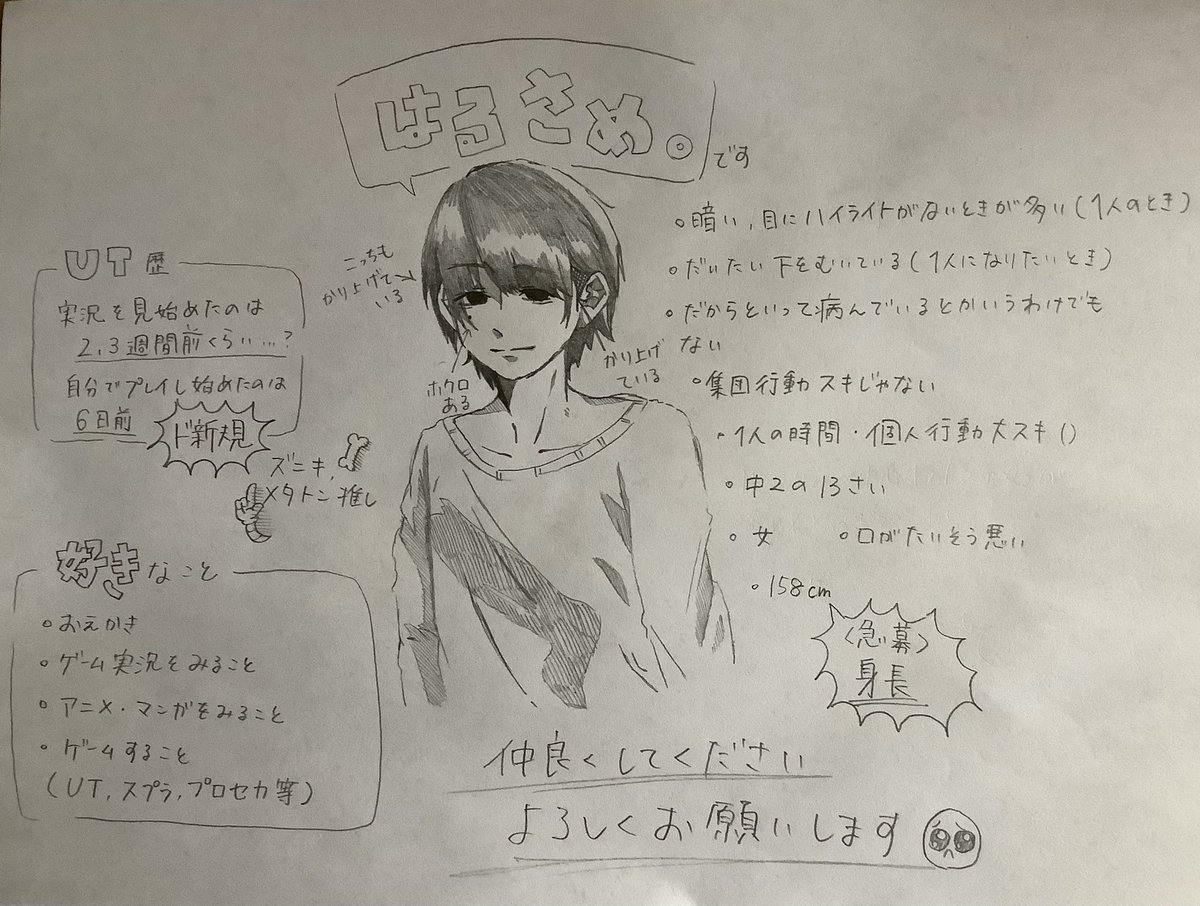 はるさめ。
です
こっちも
かり上げて
いる
ホクロ
ある
かり上げ
ている
・暗い、目にハイライトがないときが多い(1人のとき)
・だいたい下をむいている(1人になりたいとき)
・だからといって病んでいるとかいうわけでも
ない
・集団行動スキじゃない
・1人の時間・個人行動大スキ()
・中2の13さい
・女 ・口がたいそう悪い
・158cm
〈急募〉
身長
UT歴
実況を見始めたのは
2,3週間前くらい…?
自分でプレイし始めたのは
6日前
ド新規
ズニキ、
メタトン推し
好きなこと
・おえかき
・ゲーム実況をみること
・アニメ・マンガをみること
・ゲームすること
(UT,スプラ,プロセカ等)
仲良くしてください
よろしくお願いします